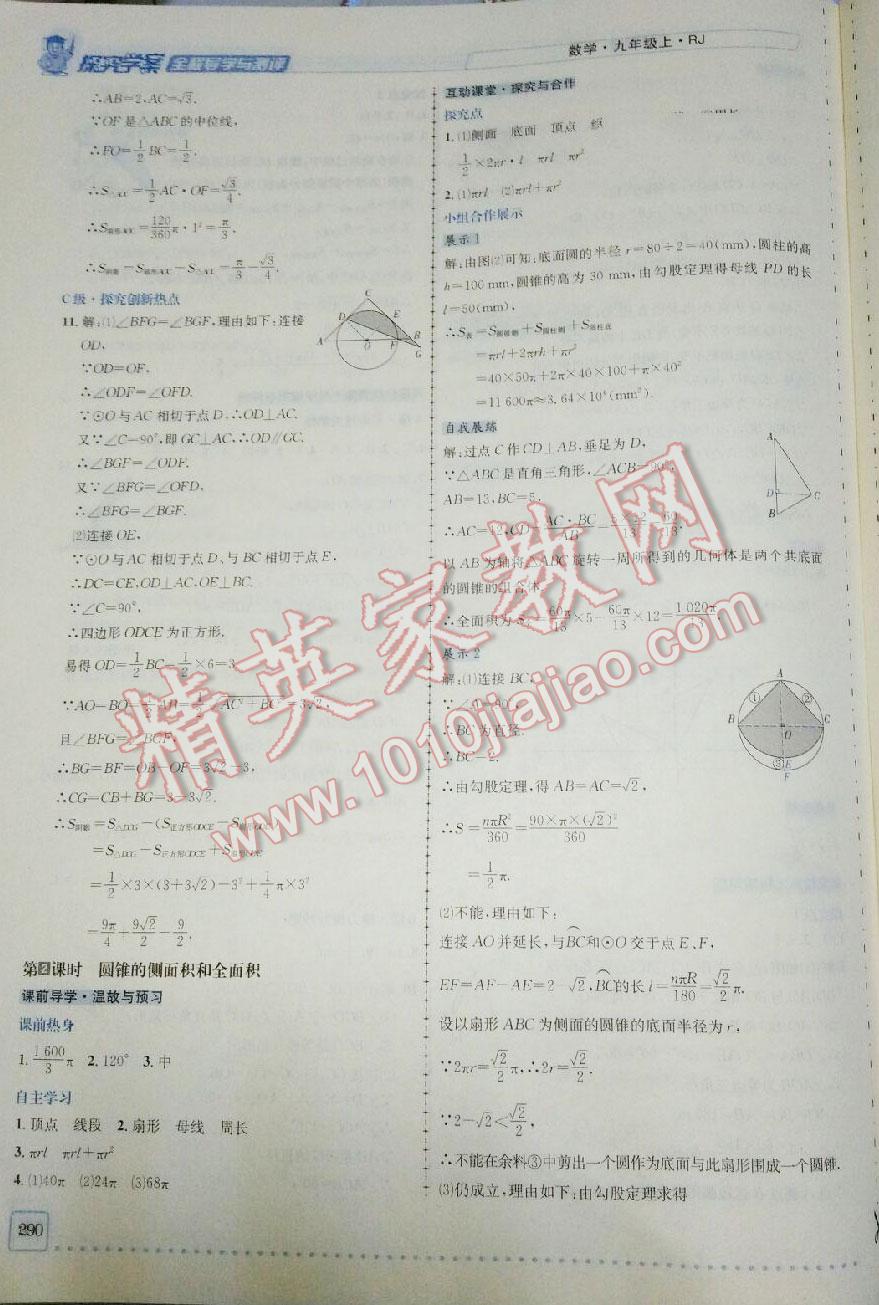 探究学案 全程导学与测评
数学·九年级上·RJ
∴AB=2,AC=√3.
∵OF是△ABC的中位线,
∴FO=1/2 BC=1/2.
∴S△AOC=1/2 AC·OF=√3/4,
∴S扇形AOC=120/360 π·1²=π/3,
∴S阴影=S扇形AOC-S△AOC=π/3-√3/4.
C级·探究创新热点
11.解:(1)∠BFG=∠BGF,理由如下:连接
OD,
∵OD=OF,
∴∠ODF=∠OFD.
∵⊙O与AC相切于点D,∴OD⊥AC.
又∵∠C=90°,即GC⊥AC,∴OD∥GC.
∴∠BGF=∠ODF.
又∵∠BFG=∠OFD,
∴∠BFG=∠BGF.
(2)连接OE,
∵⊙O与AC相切于点D、与BC相切于点E,
∴DC=CE,OD⊥AC,OE⊥BC.
∵∠C=90°,
∴四边形ODCE为正方形.
易得OD=1/2 BC=1/2×6=3
∵AO=BO=1/2 AB=1/2 √(AC²+BC²)=3√2,
且∠BFG=∠BGF,
∴BG=BF=OB-OF=3√2-3,
∴CG=CB+BG=3+3√2.
∴S阴影=S△DCG-(S正方形ODCE-S扇形ODE)
=S△DCG-S正方形ODCE+S扇形ODE
=1/2×3×(3+3√2)-3²+1/4 π×3²
=9π/4+9√2/2-9/2.
第2课时 圆锥的侧面积和全面积
课前导学·温故与预习
课前热身
1.1600/3 π 2.120° 3.中
自主学习
1.顶点 线段 2.扇形 母线 周长
3.πrl πrl+πr²
4.(1)40π (2)24π (3)68π
290
互动课堂·探究与合作
探究点
1.(1)侧面 底面 顶点
1/2×2πr·l πrl πr²
2.(1)πrl (2)πrl+πr²
小组合作展示
展示1
解:由图(2)可知:底面圆的半径r=80÷2=40(mm),圆柱的高
h=100 mm,圆锥的高为30 mm,由勾股定理得母线PD的长
l=50(mm),
∴S表=S圆锥侧+S圆柱侧+S圆柱底
=πrl+2πrh+πr²
=40×50π+2π×40×100+π×40²
=11 600π≈3.64×10⁴(mm²).
自我展练
解:过点C作CD⊥AB,垂足为D,
∵△ABC是直角三角形,∠ACB=90°,
AB=13,BC=5,
∴AC=12,CD=AC·BC/AB=5×12/13=60/13.
以AB为轴将△ABC旋转一周所得到的几何体是两个共底面
的圆锥的组合体.
∴全面积为S=60π/13×5+60π/13×12=1 020π/13.
展示2
解:(1)连接BC,
∵∠A=90°,
∴BC为直径.
∴BC=2.
∴由勾股定理,得AB=AC=√2,
∴S=nπR²/360=90×π×(√2)²/360
=1/2 π.
(2)不能,理由如下:
连接AO并延长,与BC⌒和⊙O交于点E、F,
EF=AF-AE=2-√2,BC⌒的长l=nπR/180=√2/2 π.
设以扇形ABC为侧面的圆锥的底面半径为r,
∵2πr=√2/2 π,∴2r=√2/2.
∵2-√2<√2/2,
∴不能在余料③中剪出一个圆作为底面与此扇形围成一个圆锥.
(3)仍成立,理由如下:由勾股定理求得
A
B
C
D
E
F
G
O
A
D
C
B
A
①
②
B
C
O
E
③
F
精英家教网
www.1010jiajiao.com